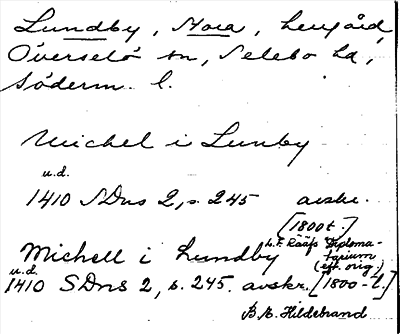 Lundby, Stora, herrgård,
Överselö sn, Selebo hd,
Söderm. l.
Michel i Lunby
u.d.
1410 SDns 2, s. 245 avskr.
[1800t.]
L.F. Rääfs Diploma-
tarium
(eft. orig.)
Michell i Lundby
u.d.
1410 SDns 2, s. 245. avskr. [1800-t.]
B.E. Hildebrand